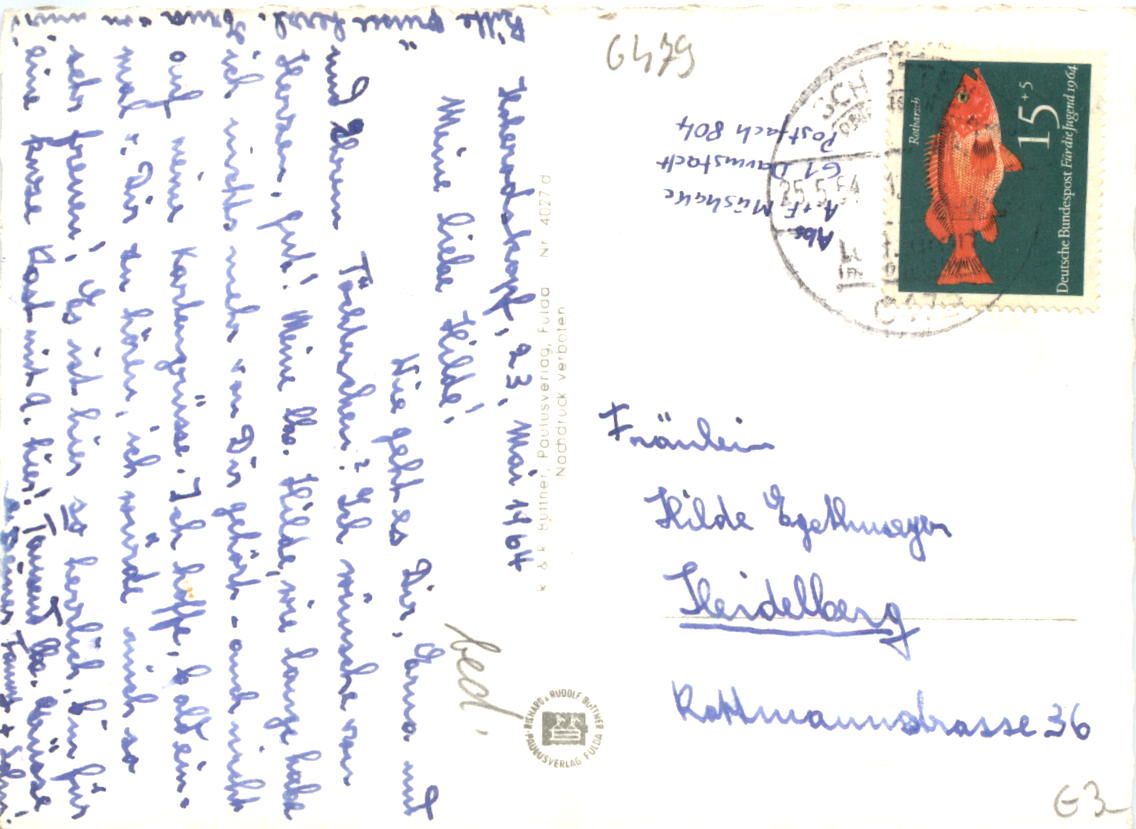 Hoherodskopf, 23. Mai 1964
Meine liebe Hilde!
Wie geht es Dir, Erna und
und Ihrem Töchterchen? Ich wünsche von
Herzen, gut! Meine lb. Hilde, wie lange habe
ich nichts mehr von Dir gehört - auch nicht
auf meine Kartengrüsse. Ich hoffe, bald ein-
mal v. Dir zu hören, ich würde mich so
sehr freuen! Es ist hier so herrlich, bin für
eine kurze Rast mit A. hier! Tausend lb. Grüsse
Deiner Tante +
Bitte grüsse herzl. Erna von mir!
K & R Büttner, Paulusverlag, Fulda Nr. 4027 d
Nachdruck verboten
bed!
RICHARD & RUDOLF BÜTTNER
PAULUSVERLAG FULDA
6479
Abs
A+F
61 Darmstadt
Postfach 804
SCH
25.5.64
Rotbarsch
15+5
Deutsche Bundespost Für die Jugend 1964
Fräulein
Hilde Egethmeyer
Heidelberg
Rottmannstrasse 36
€3,-